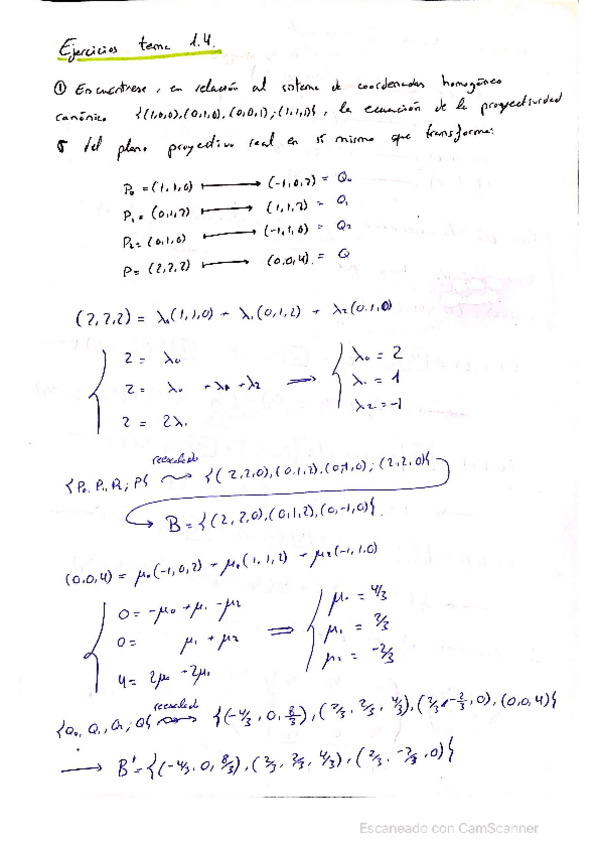 Ejercicios tema 1.4.
① Encuéntrese, en relación al sistema de coordenadas homogéneo
canónico {(1,0,0),(0,1,0),(0,0,1);(1,1,1)}, la ecuación de la proyectividad
σ del plano proyectivo real en sí mismo que transforma:
P₀ = (1,1,0) ⟼ (-1,0,2) = Q₀
P₁ = (0,1,2) ⟼ (1,1,2) = Q₁
P₂ = (0,1,0) ⟼ (-1,1,0) = Q₂
P = (2,2,2) ⟼ (0,0,4) = Q
(2,2,2) = λ₀(1,1,0) + λ₁(0,1,2) + λ₂(0,1,0)
2 = λ₀
2 = λ₀ + λ₁ + λ₂ ⟹ λ₀ = 2
λ₁ = 1
2 = 2λ₁
λ₂ = -1
reescalado
{P₀, P₁, P₂; P} ⤳ {(2,2,0),(0,1,2),(0,-1,0);(2,2,0)}
→ B = {(2,2,0),(0,1,2),(0,-1,0)}
(0,0,4) = μ₀(-1,0,2) + μ₁(1,1,2) + μ₂(-1,1,0)
0 = -μ₀ + μ₁ - μ₂ μ₀ = 4/3
0 = μ₁ + μ₂ ⟹ μ₁ = 2/3
4 = 2μ₀ + 2μ₁ μ₂ = -2/3
reescalado
{Q₀, Q₁, Q₂; Q} ⤳ {(-4/3, 0, 8/3), (2/3, 2/3, 4/3), (2/3, -2/3, 0), (0,0,4)}
→ B' = {(-4/3, 0, 8/3), (2/3, 2/3, 4/3), (2/3, -2/3, 0)}
Escaneado con CamScanner